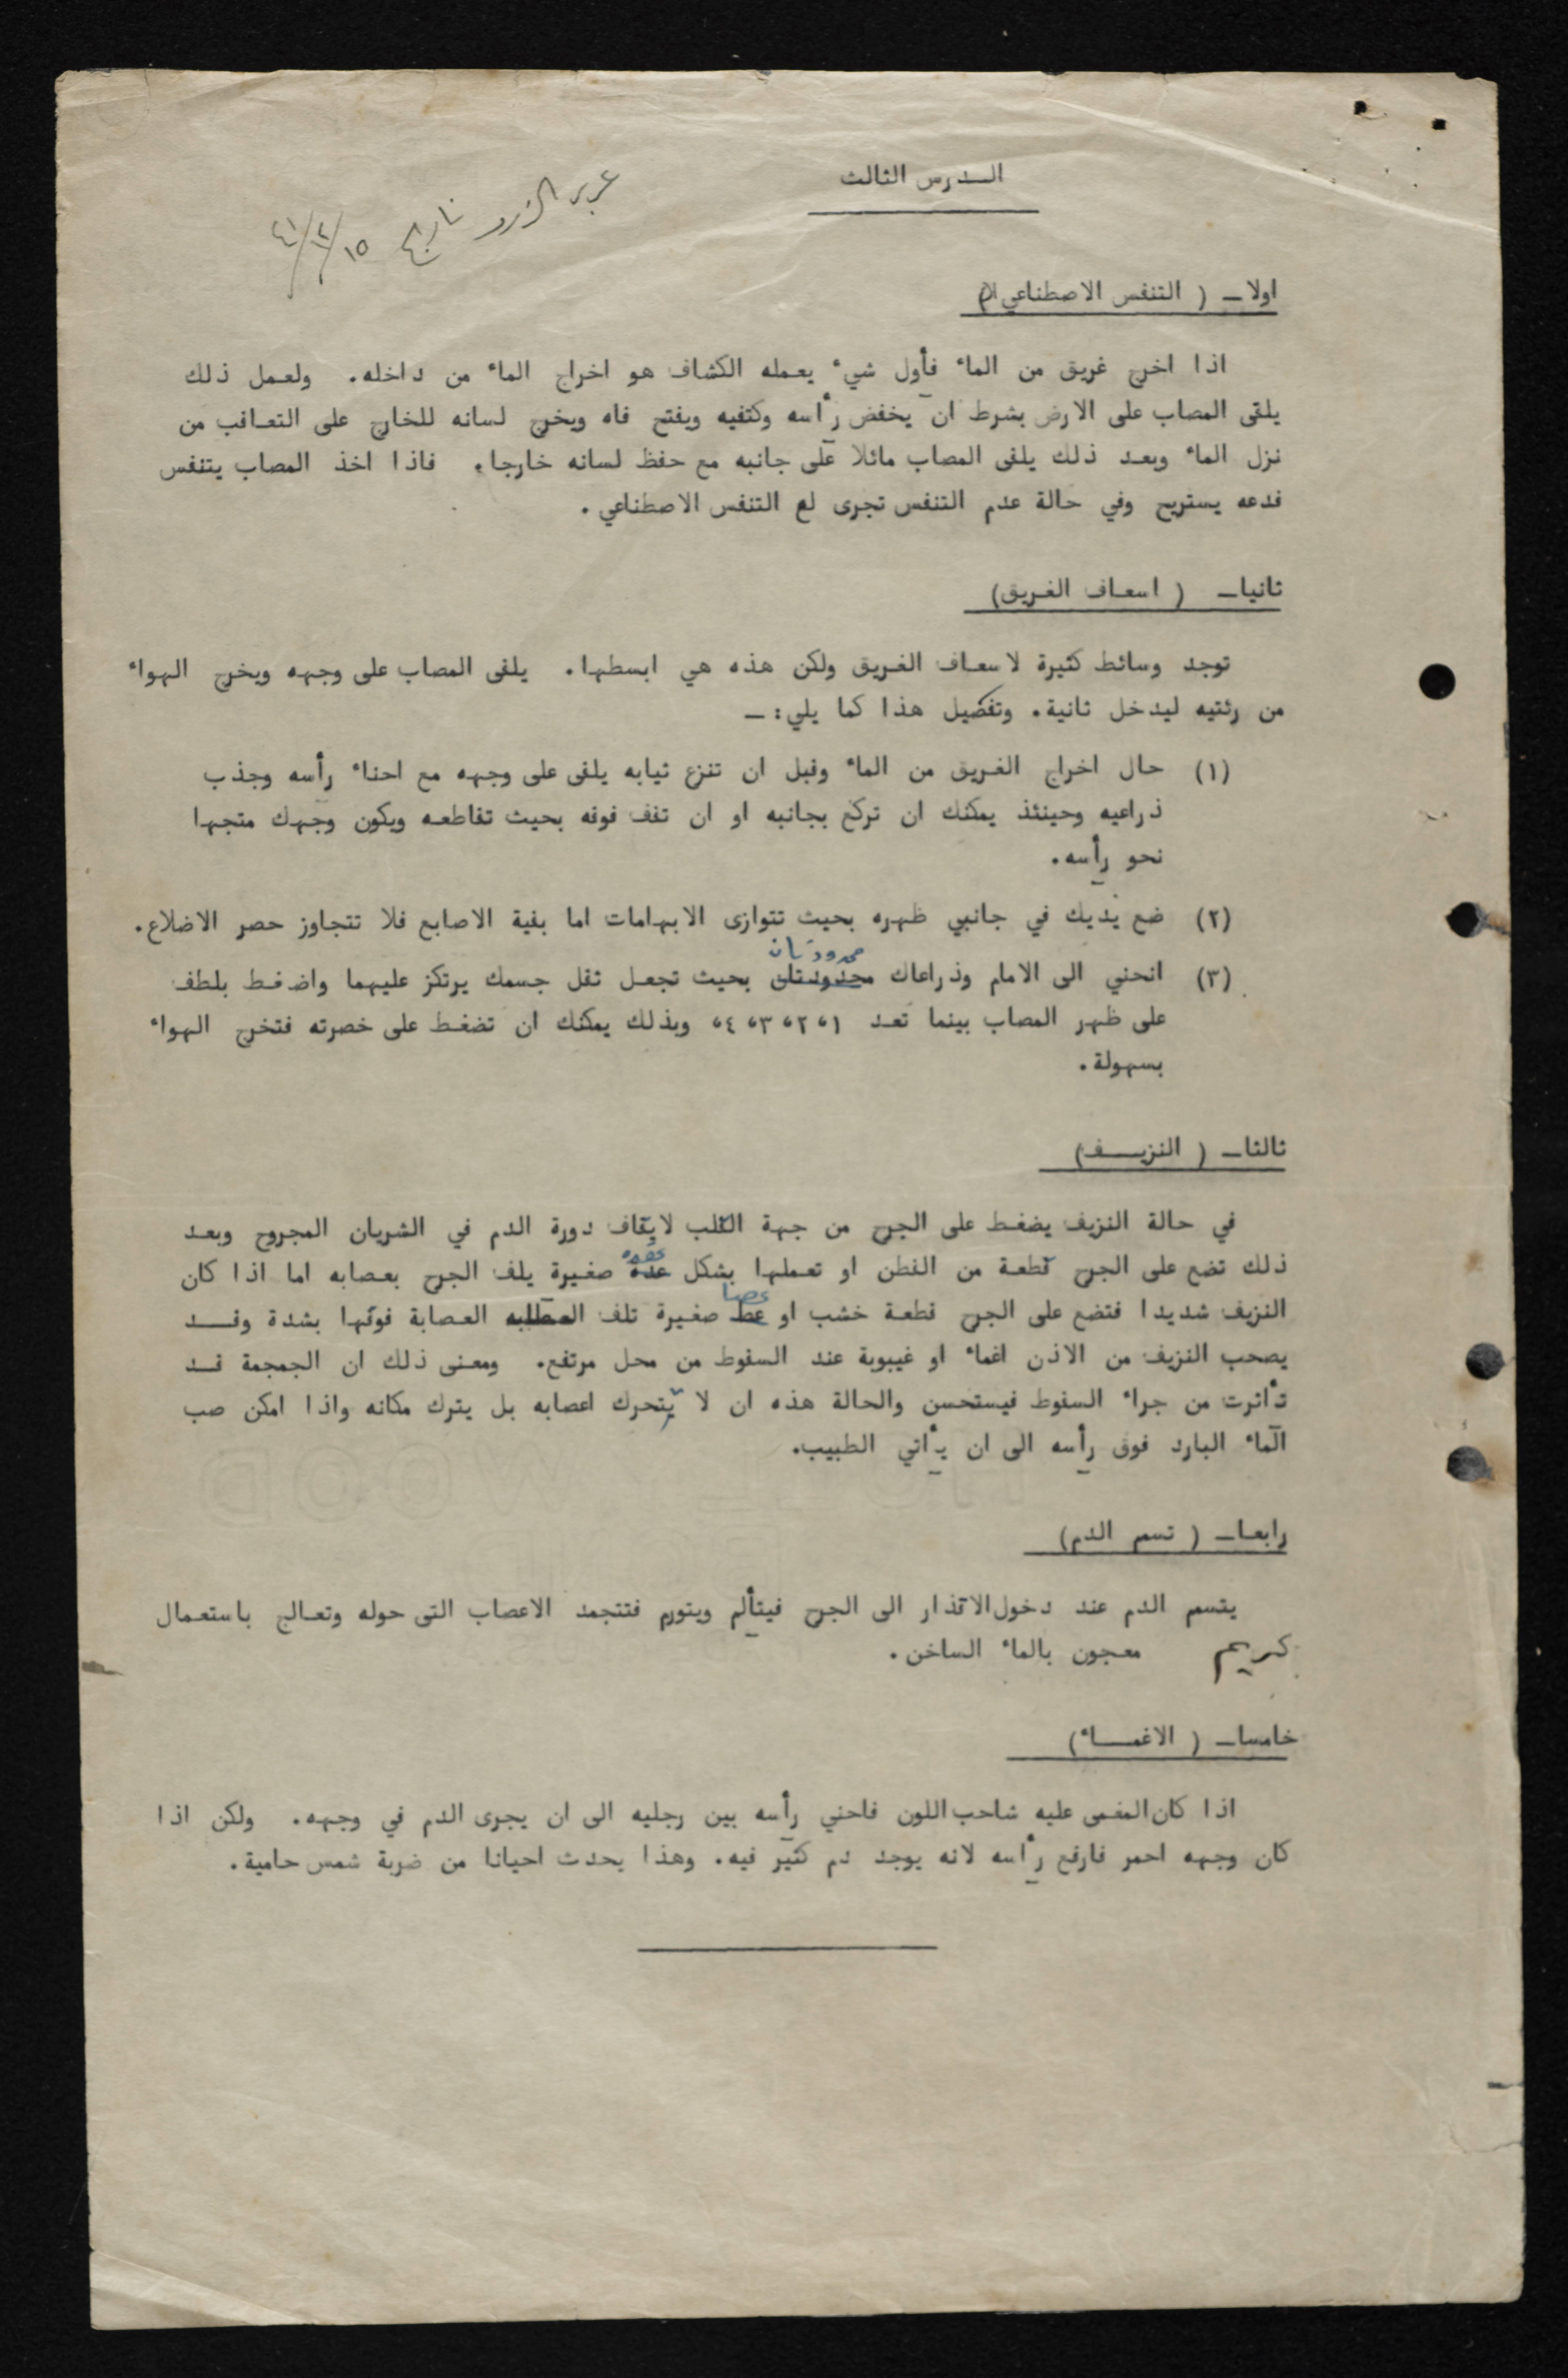 الدرس الثالث
تاريخ ١٥/٢/٤١
اولا ــ ( التنفس الاصطناعي )
اذا اخرج غريق من الماء فأول شيء يعمله الكشاف هو اخراج الماء من داخله. ولعمل ذلك
يلقى المصاب على الارض بشرط ان يخفض رأسه وكتفيه ويفتح فاه ويخرج لسانه للخارج على التعاقب من
نزل الماء وبعد ذلك يلقى المصاب مائلا على جانبه مع حفظ لسانه خارجا. فاذا اخذ المصاب يتنفس
فدعه يستريح وفي حالة عدم التنفس تجرى لع التنفس الاصطناعي .
ثانيا ــ ( اسعاف الغريق)
توجد وسائط كثيرة لاسعاف الغريق ولكن هذه هي ابسطها. يلقى المصاب على وجهه ويخرج الهواء
من رئتيه ليدخل ثانية. وتفصيل هذا كما يلي: ــ
(١) حال اخراج الغريق من الماء وقبل ان تنزع ثيابه يلقى على وجهه مع احناء رأسه وجذب
ذراعيه وحينئذ يمكنك ان تركع بجانبه او ان تقف فوقه بحيث تقاطعه ويكون وجهك متجها
نحو رأسه.
(٢) ضع يديك في جانبي ظهره بحيث تتوازى الابهامات اما بقية الاصابع فلا تتجاوز حصر الاضلاع.
(٣) انحني الى الامام وذراعاك ممدودتان بحيث تجعل ثقل جسمك يرتكز عليهما واضغط بلطف
على ظهر المصاب بينما تعد ١، ٢، ٣، ٤، وبذلك يمكنك ان تضغط على خصرته فتخرج الهواء
بسهولة.
ثالثا ــ ( النزيـــف)
في حالة النزيف يضغط على الجرح من جهة القلب لايقاف دورة الدم في الشريان المجروح وبعد
ذلك تضع على الجرح قطعة من القطن او تعملها بشكل عقده صغيرة يلف الجرح بعصابه اما اذا كان
النزيف شديدا فتضع على الجرح قطعة خشب او عصا صغيرة تلف العصابة فوقها بشدة وقـــد
يصحب النزيف من الاذن اغماء او غيبوبة عند السقوط من محل مرتفع. ومعنى ذلك ان الجمجمة قـد
تأثرت من جراء السقوط فيستحسن والحالة هذه ان لا يتحرك اعصابه بل يترك مكانه واذا امكن صب
الماء البارد فوق رأسه الى ان يأتي الطبيب.
رابعا ــ ( تسمم الدم)
يتسمم الدم عند دخول الاقذار الى الجرح فيتألم ويتورم فتتجمد الاعصاب التى حوله وتعالج باستعمال
كريم معجون بالماء الساخن .
خامسا ــ ( الاغمـــاء)
اذا كان المغمى عليه شاحب اللون فاحني رأسه بين رجليه الى ان يجرى الدم في وجهه. ولكن اذا
كان وجهه احمر فارفع رأسه لانه يوجد دم كثير فيه. وهذا يحدث احيانا من ضربة شمس حامية.